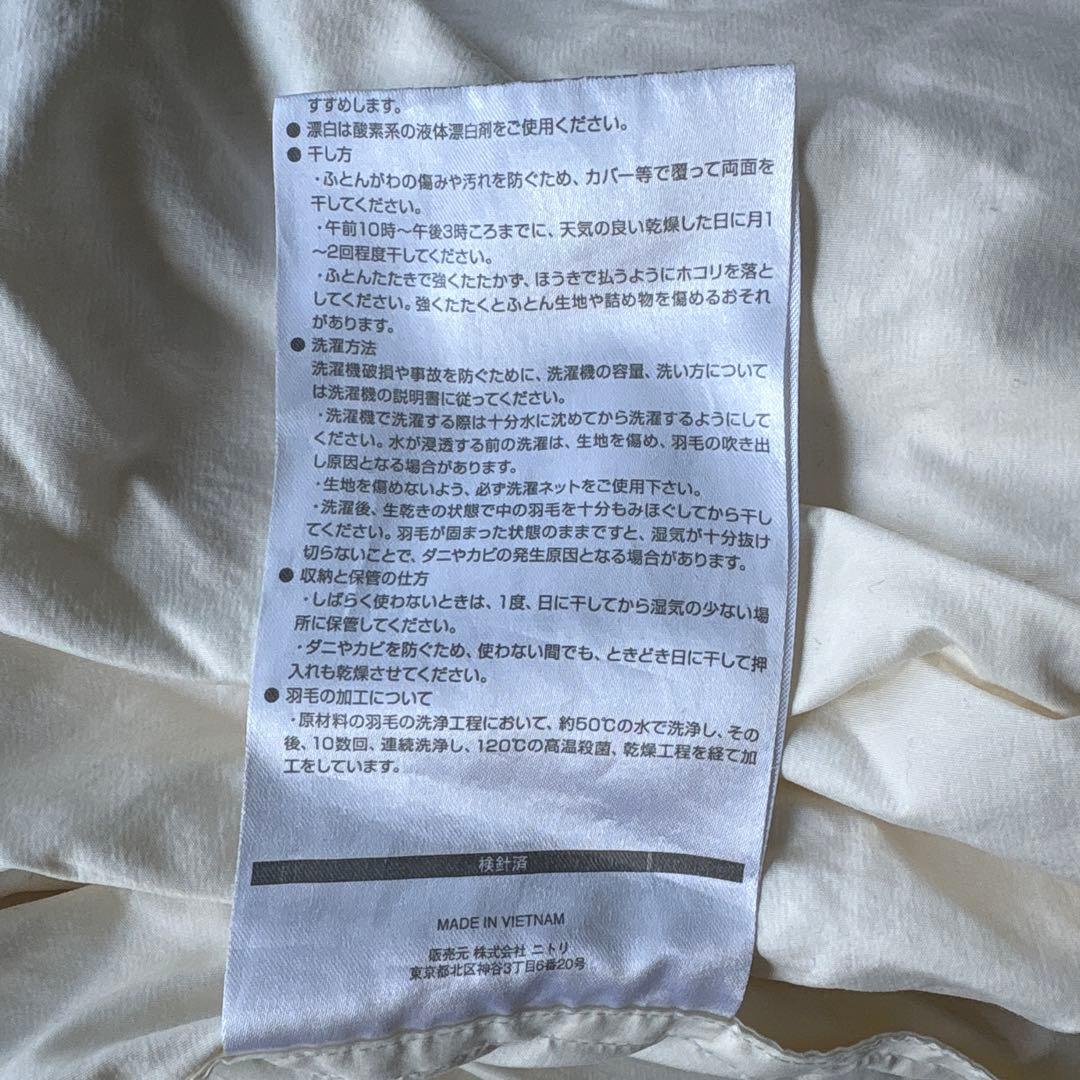 すすめします。
● 漂白は酸素系の液体漂白剤をご使用ください。
● 干し方
・ふとんがわの傷みや汚れを防ぐため、カバー等で覆って両面を
干してください。
・午前10時〜午後3時ころまでに、天気の良い乾燥した日に月1
〜2回程度干してください。
・ふとんたたきで強くたたかず、ほうきで払うようにホコリを落と
してください。強くたたくとふとん生地や詰め物を傷めるおそれ
があります。
● 洗濯方法
洗濯機破損や事故を防ぐために、洗濯機の容量、洗い方について
は洗濯機の説明書に従ってください。
・洗濯機で洗濯する際は十分水に沈めてから洗濯するようにして
ください。水が浸透する前の洗濯は、生地を傷め、羽毛の吹き出
し原因となる場合があります。
・生地を傷めないよう、必ず洗濯ネットをご使用下さい。
・洗濯後、生乾きの状態で中の羽毛を十分もみほぐしてから干し
てください。羽毛が固まった状態のままですと、湿気が十分抜け
切らないことで、ダニやカビの発生原因となる場合があります。
● 収納と保管の仕方
・しばらく使わないときは、1度、日に干してから湿気の少ない場
所に保管してください。
・ダニやカビを防ぐため、使わない間でも、ときどき日に干して押
入れも乾燥させてください。
● 羽毛の加工について
・原材料の羽毛の洗浄工程において、約50℃の水で洗浄し、その
後、10数回、連続洗浄し、120℃の高温殺菌、乾燥工程を経て加
工をしています。
検針済
MADE IN VIETNAM
販売元 株式会社 ニトリ
東京都北区神谷3丁目6番20号